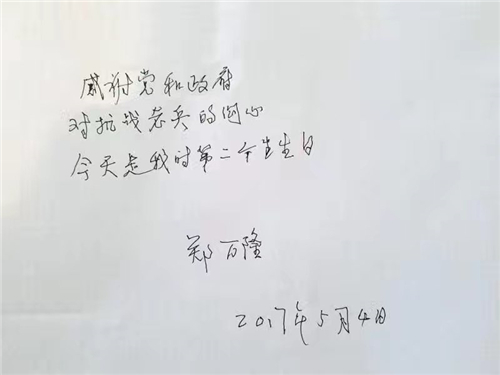 感谢党和政府
对抗战老兵的关心
今天是我的第二个生生日
郑百隆
2017年5月4日